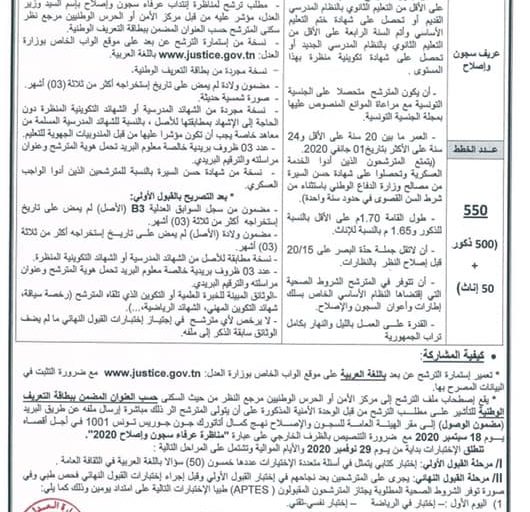 عريف سجون وإصلاح
عـــدد الخطط
550
(500 ذكور
+
50 إناث)
من التعليم الثانوي بالنظام المدرسي
القديم أو تحصل على شهادة ختم التعليم
الأساسي وأتم السنة الرابعة على الأقل من
التعليم الثانوي بالنظام المدرسي الجديد أو
تحصل على شهادة تكوينية منظرة بهذا
المستوى .
- أن يكون المترشح متحصلا على الجنسية
التونسية مع مراعاة الموانع المنصوص عليها
بمجلة الجنسية التونسية.
- العمر ما بين 20 سنة على الأقل و24
سنة على الأكثر بتاريخ 01 جانفي 2020.
(يتمتع المترشحون الذين أدوا الخدمة
العسكرية وتحصلوا على شهادة حسن السيرة
من مصالح وزارة الدفاع الوطني باستثناء من
شرط السن القصوى في حدود سنة واحدة).
- طول القامة 1.70م على الأقل بالنسبة
للذكور و1.65 م بالنسبة للإناث.
- أن لاتقل جملة حدة البصر على 20/15
قبل إصلاح النظر بالنظارات.
- أن تتوفر في المترشح الشروط الصحية
التي إقتضاها النظام الأساسي الخاص بسلك
إطارات وأعوان السجون والإصلاح.
- القدرة على العمل بالليل والنهار بكامل
تراب الجمهورية
- مطلب ترشح لمناظرة إنتداب عرفاء سجون وإصلاح بإسم السيد وزير
العدل، مؤشر عليه من قبل مركز الأمن أو الحرس الوطنيين مرجع نظر
سكنى المترشح حسب العنوان المضمن ببطاقة التعريف الوطنية.
- نسخة من إستمارة الترشح عن بعد على موقع الواب الخاص بوزارة
العدل: www.justice.gov.tn باللغة العربية.
- نسخة مجردة من بطاقة التعريف الوطنية.
- مضمون ولادة لم يمض على تاريخ إستخراجه أكثر من ثلاثة (03) أشهر.
- صورة شمسية حديثة.
- نسخة مجردة من الشهائد المدرسية أو الشهائد التكوينية المنظرة دون
الحاجة إلى الإشهاد بمطابقتها للأصل ، بالنسبة للشهائد المدرسية المسلمة من
معاهد خاصة يجب أن تكون مؤشرا عليها من قبل المندوبيات الجهوية للتعليم.
- عدد 03 ظروف بريدية خالصة معلوم البريد تحمل هوية المترشح وعنوان
مراسلته والترقيم البريدي.
- نسخة من شهادة حسن السيرة بالنسبة للمترشحين الذين أدوا الواجب
العسكري.
* بعد التصريح بالقبول الأولي:
- مضمون من سجل السوابق العدلية B3 (الأصل) لم يمض على تاريخ
إستخراجه أكثر من ثلاثة (03) أشهر.
- مضمون ولادة (الأصل) لم يمض على تاريخ إستخراجه أكثر من ثلاثة
(03) أشهر.
- نسخة مطابقة للأصل من الشهائد المدرسية أو الشهائد التكوينية المنظرة.
- عدد 03 ظروف بريدية خالصة معلوم البريد تحمل هوية المترشح وعنوان
مراسلته والترقيم البريدي.
-الوثائق المبينة للخبرة العلمية أو التكوين الذي تلقاه المترشح (رخصة سياقة،
شهائد التكوين المهني، الشهائد الرياضية،...).
- لا يرخص لأي مترشح في إجتياز إختبارات القبول النهائي ما لم يضف
الوثائق سابقة الذكر إلى ملفه.
• كيفية المشاركة:
* تعمير إستمارة الترشح عن بعد باللغة العربية على موقع الواب الخاص بوزارة العدل: www.justice.gov.tn مع ضرورة التثبت في
البيانات المصرح بها.
* يقع إصطحاب ملف الترشح إلى مركز الأمن أو الحرس الوطنيين مرجع النظر من حيث السكنى حسب العنوان المضمن ببطاقة التعريف
الوطنية للتأشير على مطلب الترشح من قبل الوحدة الأمنية المذكورة على أن يتولى المترشح اثر ذلك مباشرة إرسال ملفه عن طريق البريد
(مضمون الوصول) إلى مقر الهيئة العامة للسجون والإصلاح نهج كمال أتاتورك جون جوريس تونس 1001 في أجل أقصاه
يوم 18 سبتمبر 2020 مع ضرورة التنصيص بالظرف الخارجي على عبارة "مناظرة عرفاء سجون وإصلاح 2020".
تنطلق الإختبارات بداية من يوم 29 نوفمبر 2020 والأيام الموالية وتشتمل على المراحل التالية :
I/ مرحلة القبول الأولي: إختبار كتابي يتمثل في أسئلة متعددة الإختيارات عددها خمسون (50) سؤالا باللغة العربية في الثقافة العامة .
II/ مرحلة القبول النهائي: يجرى على المترشحين بعد نجاحهم في إختبار القبول الأولي وقبل إجراء إختبارات القبول النهائي فحص طبي وفي
صورة توفر الشروط الصحية المطلوبة يجتاز المترشحون المقبولون (APTES) طبيا الإختبارات التالية على امتداد يومين وذلك كما يلي:
1) اليوم الأول :- إختبار في الرياضة – إختبار نفسي-تقني.